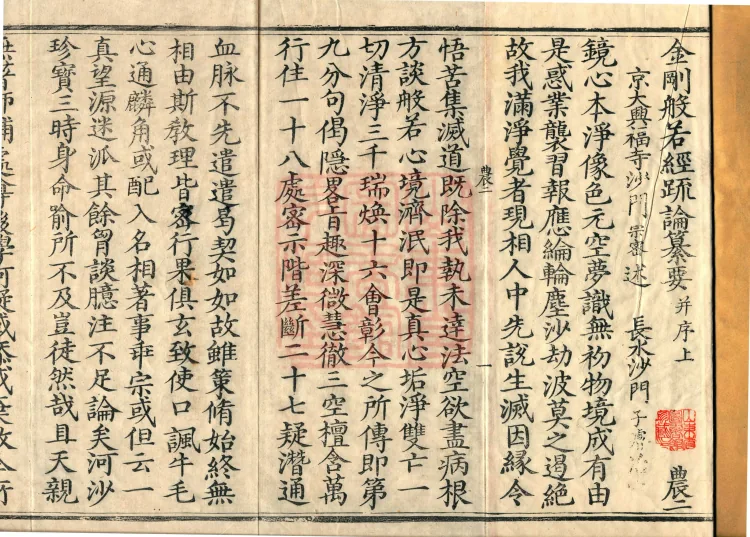 金剛般若經疏論纂要 并序上 農二
京大興福寺沙門宗密述 長水沙門子
鏡心本淨像色元空夢識無初物境成有由
是惑業襲習報應綸輪塵沙劫波莫之遏絕
故我滿淨覺者現相人中先說生滅因緣令
農二 一
悟苦集滅道既除我執未達法空欲盡病根
方談般若心境濟泯即是真心垢淨雙亡一
切清淨三千瑞煥十六會彰今之所傳即第
九分句偈隱畧旨趣深微慧徹三空檀含萬
行住一十八處密示階差斷二十七疑潛通
血脉不先遣遣曷契如如故雖策脩始終無
相由斯教理皆密行果俱玄致使口諷牛毛
心通麟角或配入名相著事乖宗或但云一
真望源迷派其餘胷談臆注不足論矣河沙
珍寶三時身命喻所不及豈徒然哉且天親